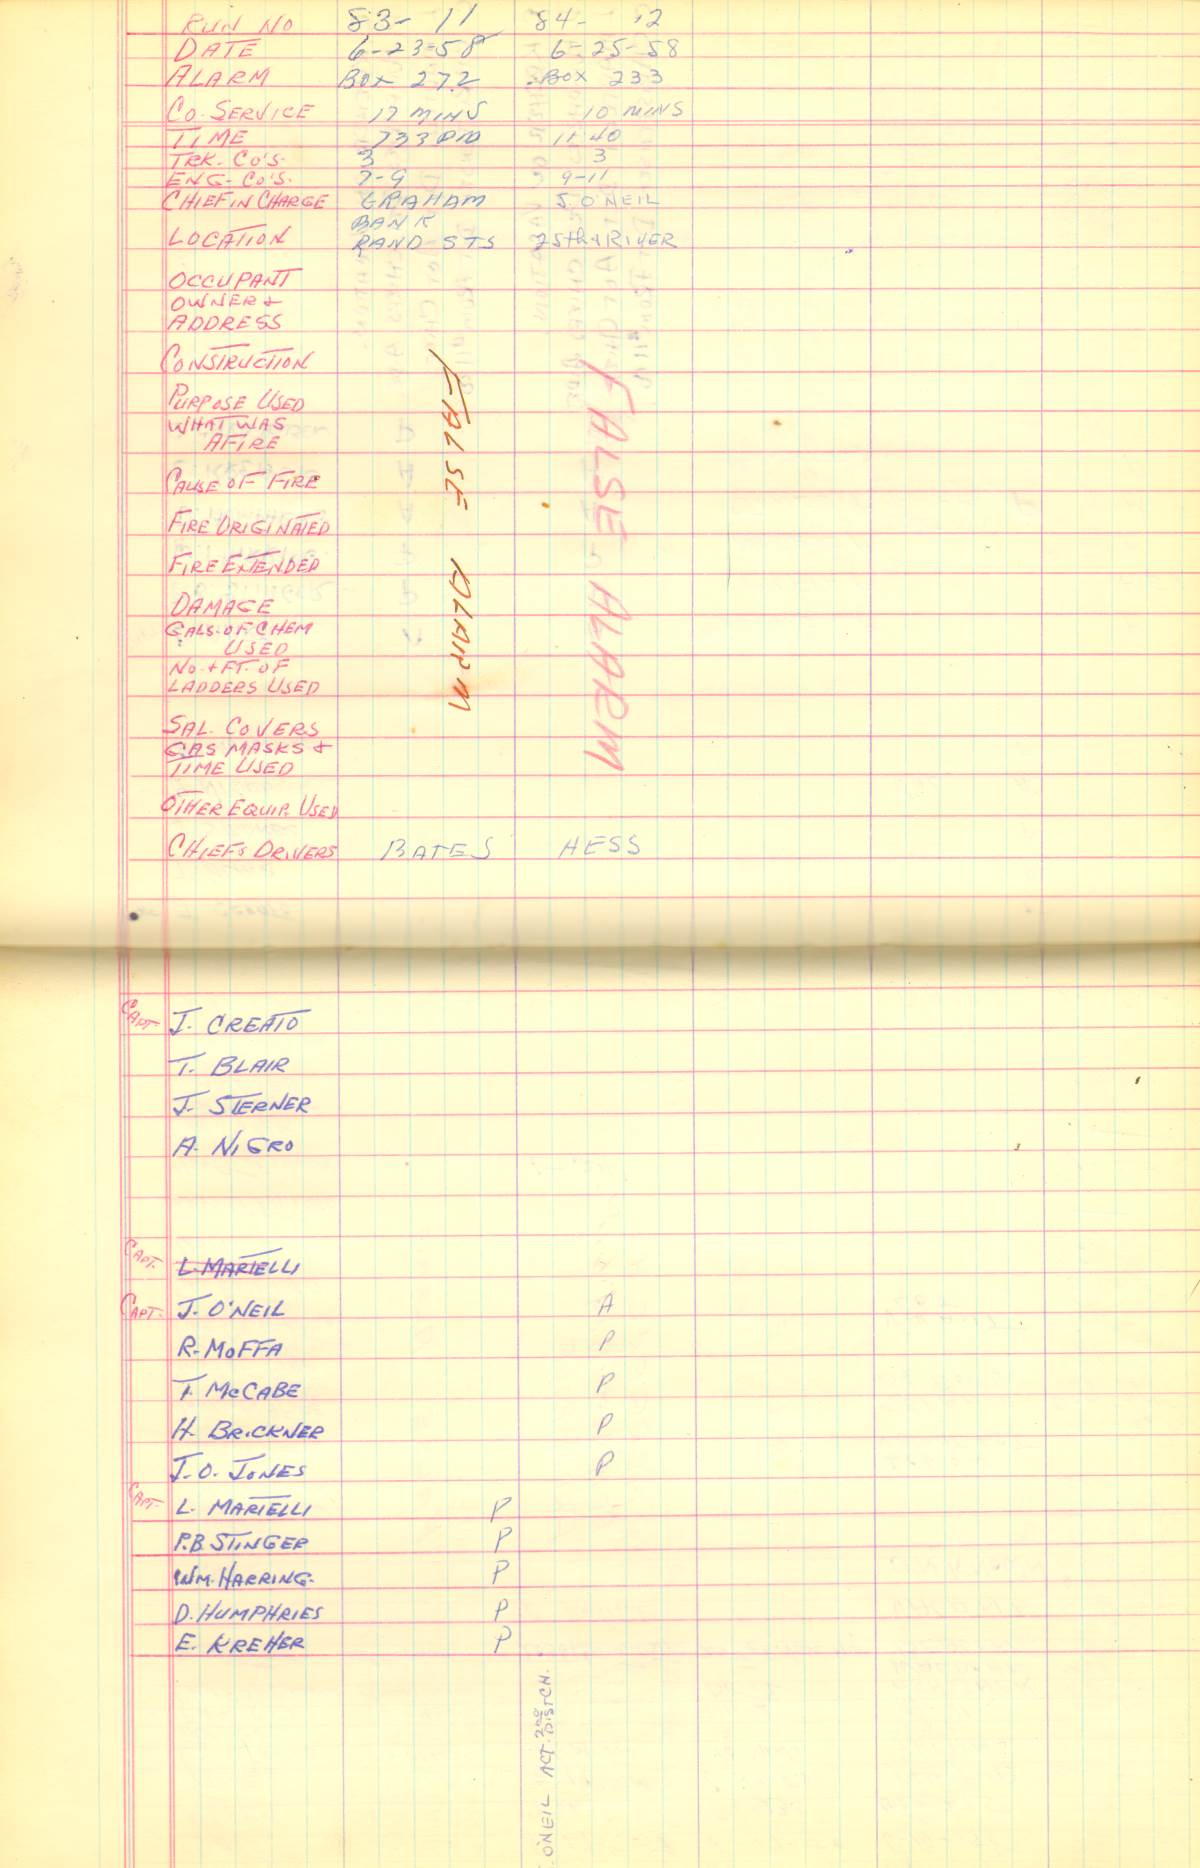 RUN NO 83- 11 84- 12
DATE 6-23-58 6-25-58
ALARM BOX 272 BOX 233
CO. SERVICE 17 MINS 10 MINS
TIME 733 PM 11-40
TRK. CO'S. 3 3
ENG- CO'S. 7-9 9-11
CHIEF IN CHARGE GRAHAM J O'NEIL
BANK
LOCATION RAND STS 25th & RIVER
OCCUPANT
OWNER &
ADDRESS
CONSTRUCTION
PURPOSE USED
WHAT WAS
AFIRE
CAUSE OF FIRE
FIRE ORIGINATED
FIRE EXTENDED
DAMAGE
GALS-OF-CHEM
USED
NO. & FT. OF
LADDERS USED
SAL. COVERS
GAS MASKS &
TIME USED
OTHER EQUIP. USED
FALSE ALARM
FALSE ALARM
CHIEFS DRIVERS BATES HESS
CAPT. J. CREATO
T. BLAIR
J. STERNER
A. NIGRO
CAPT. L. MARTELLI
CAPT. J. O'NEIL A
R. MOFFA P
T. McCABE P
H. BRICKNER P
J. O. JONES P
CAPT. L. MARTELLI P
P.B STINGER P
WM. HARRING. P
D. HUMPHRIES P
E. KREHER P
O'NEIL ACT. 2ND DISTCH.